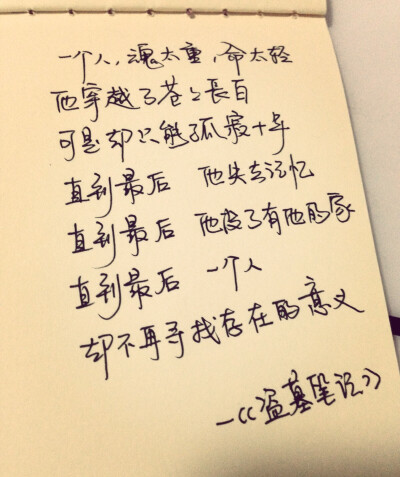 一个人，魂太重，命太轻
他穿越了苍々長白
可是却只能孤寂十年
直到最后 他失去记忆
直到最后 他没了有他的家
直到最后 一个人
却不再寻找存在的意义
—《盗墓笔记》